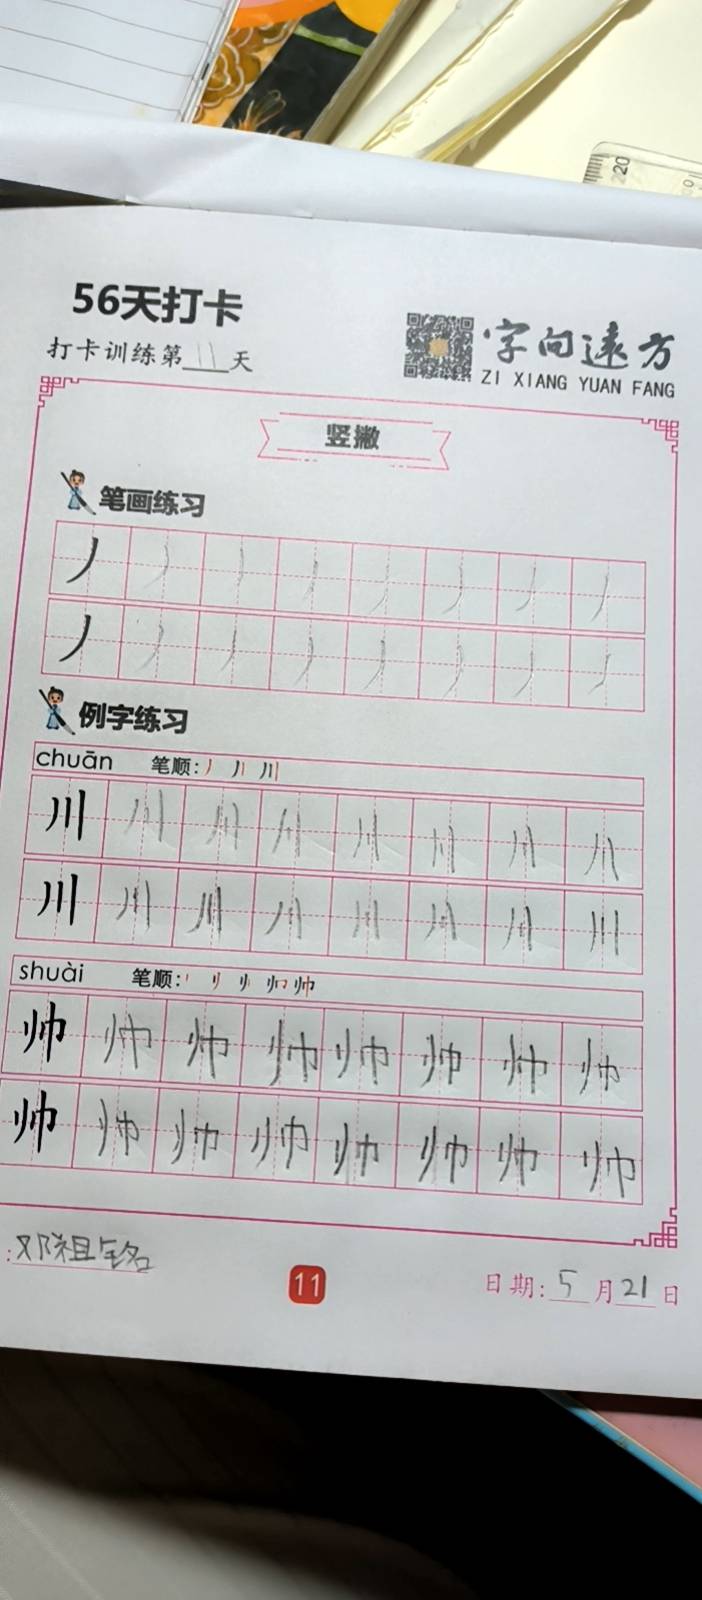 20
56天打卡
打卡训练第11天
字向遠方
ZI XIANG YUAN FANG
竖撇
笔画练习
丿丿丿丿丿丿丿丿
丿丿丿丿丿丿丿丿
例字练习
chuān 笔顺: 丿 丿丨 川
川川川川川川川川
川川川川川川川川
shuài 笔顺: 帅
帅帅帅帅帅帅帅帅
帅帅帅帅帅帅帅帅
: 邓祖铭
11
日期: 5月21日